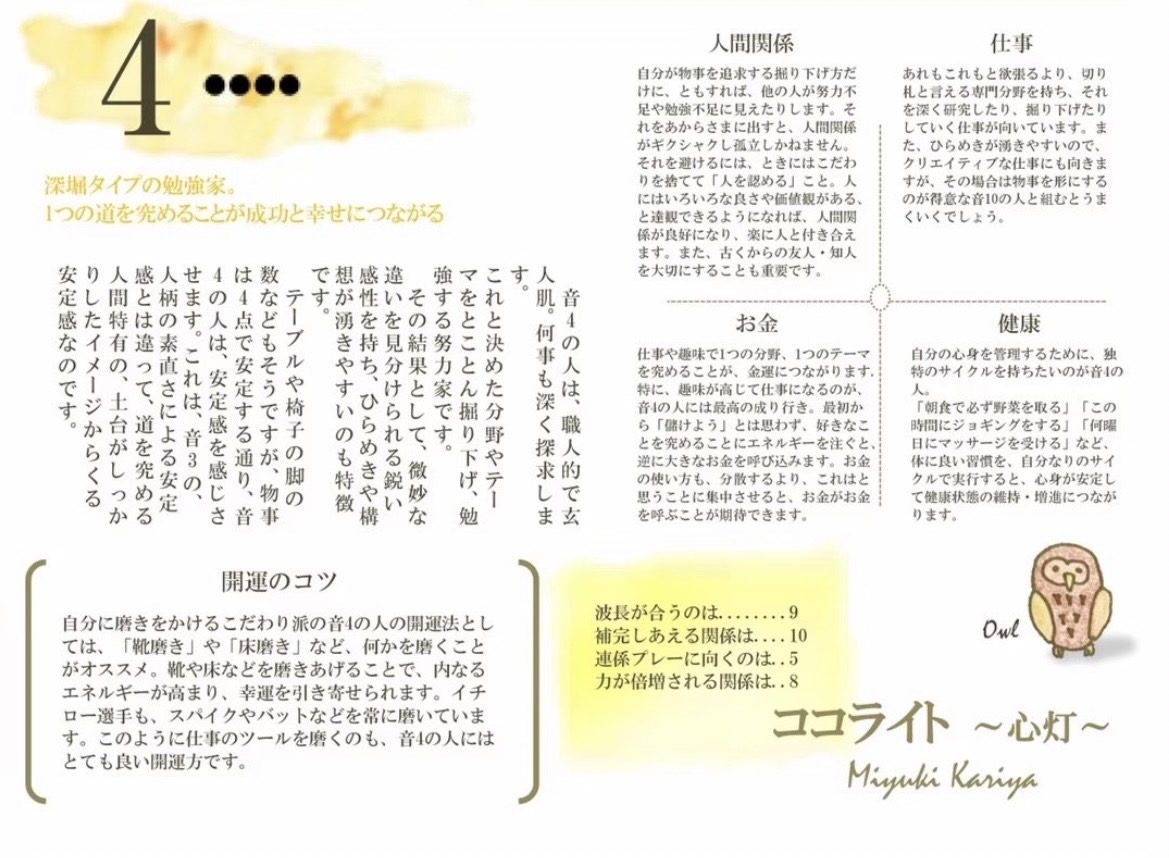 4
深堀タイプの勉強家。
1つの道を究めることが成功と幸せにつながる
音4の人は、職人的で玄
人肌。何事も深く探求しま
す。
これと決めた分野やテー
マをとことん掘り下げ、勉
強する努力家です。
その結果として、微妙な
違いを見分けられる鋭い
感性を持ち、ひらめきや構
想が湧きやすいのも特徴
です。
テーブルや椅子の脚の
数などもそうですが、物事
は4点で安定する通り、音
4の人は、安定感を感じさ
せます。これは、音3の、
人柄の素直さによる安定
感とは違って、道を究める
人間特有の、土台がしっか
りしたイメージからくる
安定感なのです。
人間関係
自分が物事を追求する掘り下げ方だ
けに、ともすれば、他の人が努力不
足や勉強不足に見えたりします。そ
れをあからさまに出すと、人間関係
がギクシャクし孤立しかねません。
それを避けるには、ときにはこだわ
りを捨てて「人を認める」こと。人
にはいろいろな良さや価値観がある、
と達観できるようになれば、人間関
係が良好になり、楽に人と付き合え
ます。また、古くからの友人・知人
を大切にすることも重要です。
仕事
あれもこれもと欲張るより、切り
札と言える専門分野を持ち、それ
を深く研究したり、掘り下げたり
していく仕事が向いています。ま
た、ひらめきが湧きやすいので、
クリエイティブな仕事にも向きま
すが、その場合は物事を形にする
のが得意な音10の人と組むとうま
くいくでしょう。
お金
仕事や趣味で1つの分野、1つのテーマ
を究めることが、金運につながります.
特に、趣味が高じて仕事になるのが、
音4の人には最高の成り行き。最初か
ら「儲けよう」とは思わず、好きなこ
とを究めることにエネルギーを注ぐと、
逆に大きなお金を呼び込みます。お金
の使い方も、分散するより、これはと
思うことに集中させると、お金がお金
を呼ぶことが期待できます。
健康
自分の心身を管理するために、独
特のサイクルを持ちたいのが音4の
人。
「朝食で必ず野菜を取る」「この
時間にジョギングをする」「何曜
日にマッサージを受ける」など、
体に良い習慣を、自分なりのサイ
クルで実行すると、心身が安定し
て健康状態の維持・増進につなが
ります。
開運のコツ
自分に磨きをかけるこだわり派の音4の人の開運法とし
ては、「靴磨き」や「床磨き」など、何かを磨くこと
がオススメ。靴や床などを磨きあげることで、内なる
エネルギーが高まり、幸運を引き寄せられます。イチ
ロー選手も、スパイクやバットなどを常に磨いていま
す。このように仕事のツールを磨くのも、音4の人には
とても良い開運方です。
波長が合うのは........9
補完しあえる関係は....10
連係プレーに向くのは..5
力が倍増される関係は..8
Owl
ココライト ～心灯～
Miyuki Kariya